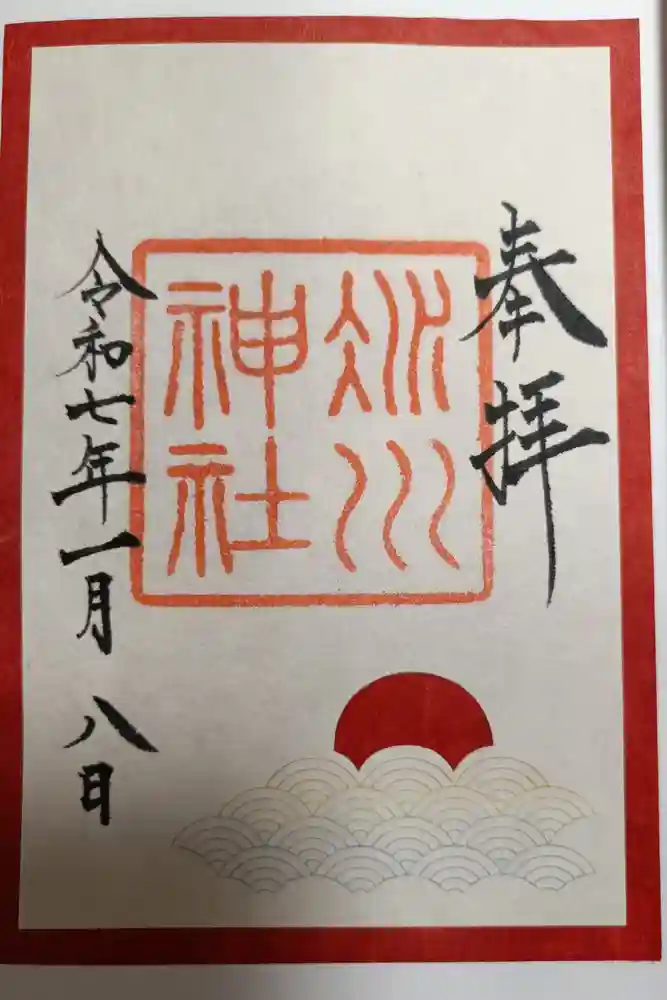 奉拝
冰川
神社
令和七年一月八日